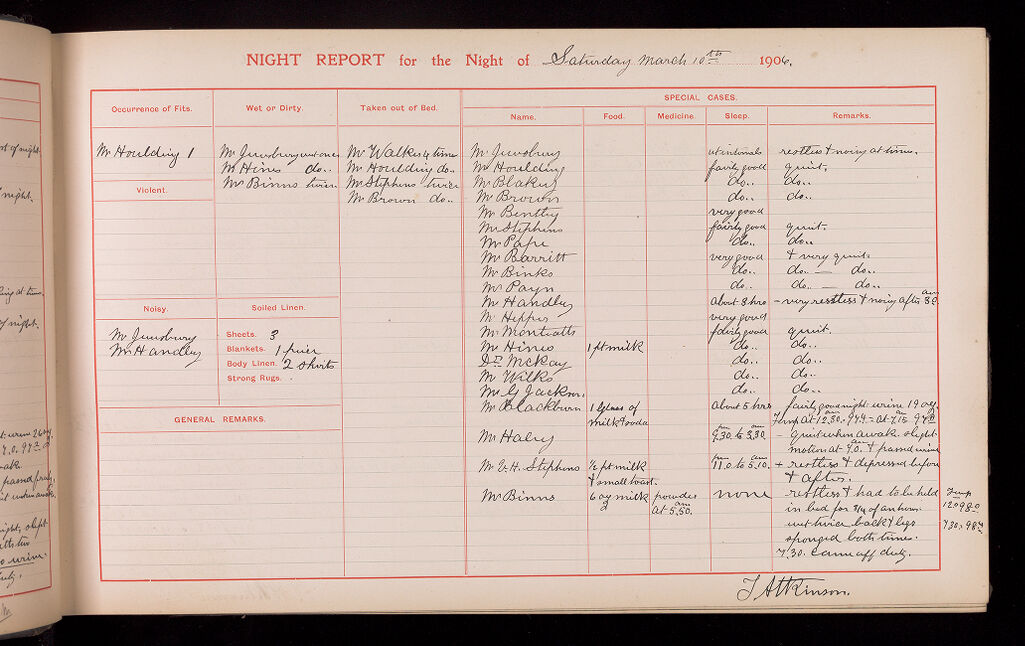 NIGHT REPORT for the Night of Saturday March 10th 1906.
Occurrence of Fits. Wet or Dirty. Taken out of Bed. SPECIAL CASES.
Name. Food. Medicine. Sleep. Remarks.
Mr Houlding 1
Violent.
Noisy.
Mr Jewsbury
Mr Handley
Mr Jewsbury wet once
Mr Hines do..
Mr Binns twice
Soiled Linen.
Sheets. 3
Blankets. 1 pair
Body Linen. 2 shirts
Strong Rugs. .
Mr Walker 4 times
Mr Houlding do..
Mr Stephens twice
Mr Brown do..
GENERAL REMARKS.
Mr Jewsbury at intervals restless & noisy at times.
Mr Houlding fairly good quiet.
Mr Blakey do.. do..
Mr Brown do.. do..
Mr Bentley very good
Mr Stephens fairly good quiet.
Mr Pape do.. do..
Mr Barritt very good & very quiet.
Mr Binks do.. do.. — do..
Mr Payn do.. do.. — do..
Mr Handley about 3 hrs – very restless & noisy after am
Mr Hepper very good
Mr Montcatts fairly good quiet.
Mr Hines 1 pt milk do.. do..
Dr McKay do.. do..
Mr Wilks do.. do..
Mr G Jackson do.. do..
Mr Blackburn 1 glass of about 5 hrs fairly good night urine 19 ozs
milk & soda Temp at 12.30. am 97.4 = at 7.15 am
Mr Haley pm 9.30. to am 3.30. – quiet when awake slight
motion at am 7.0. & passed urine
Mr V. H. Stephens ½ pt milk pm 11.0 to am 5.10. + restless & depressed before
& small toast. & after.
Mr Binns 6 oz milk powder none restless & had to be held Temp
2 at am 5.50. in bed for ¾ of an hour 12 = 98.0
wet twice back & legs 7.30. 98.4
sponged both times.
7.30. came off duty.
T Atkinson.